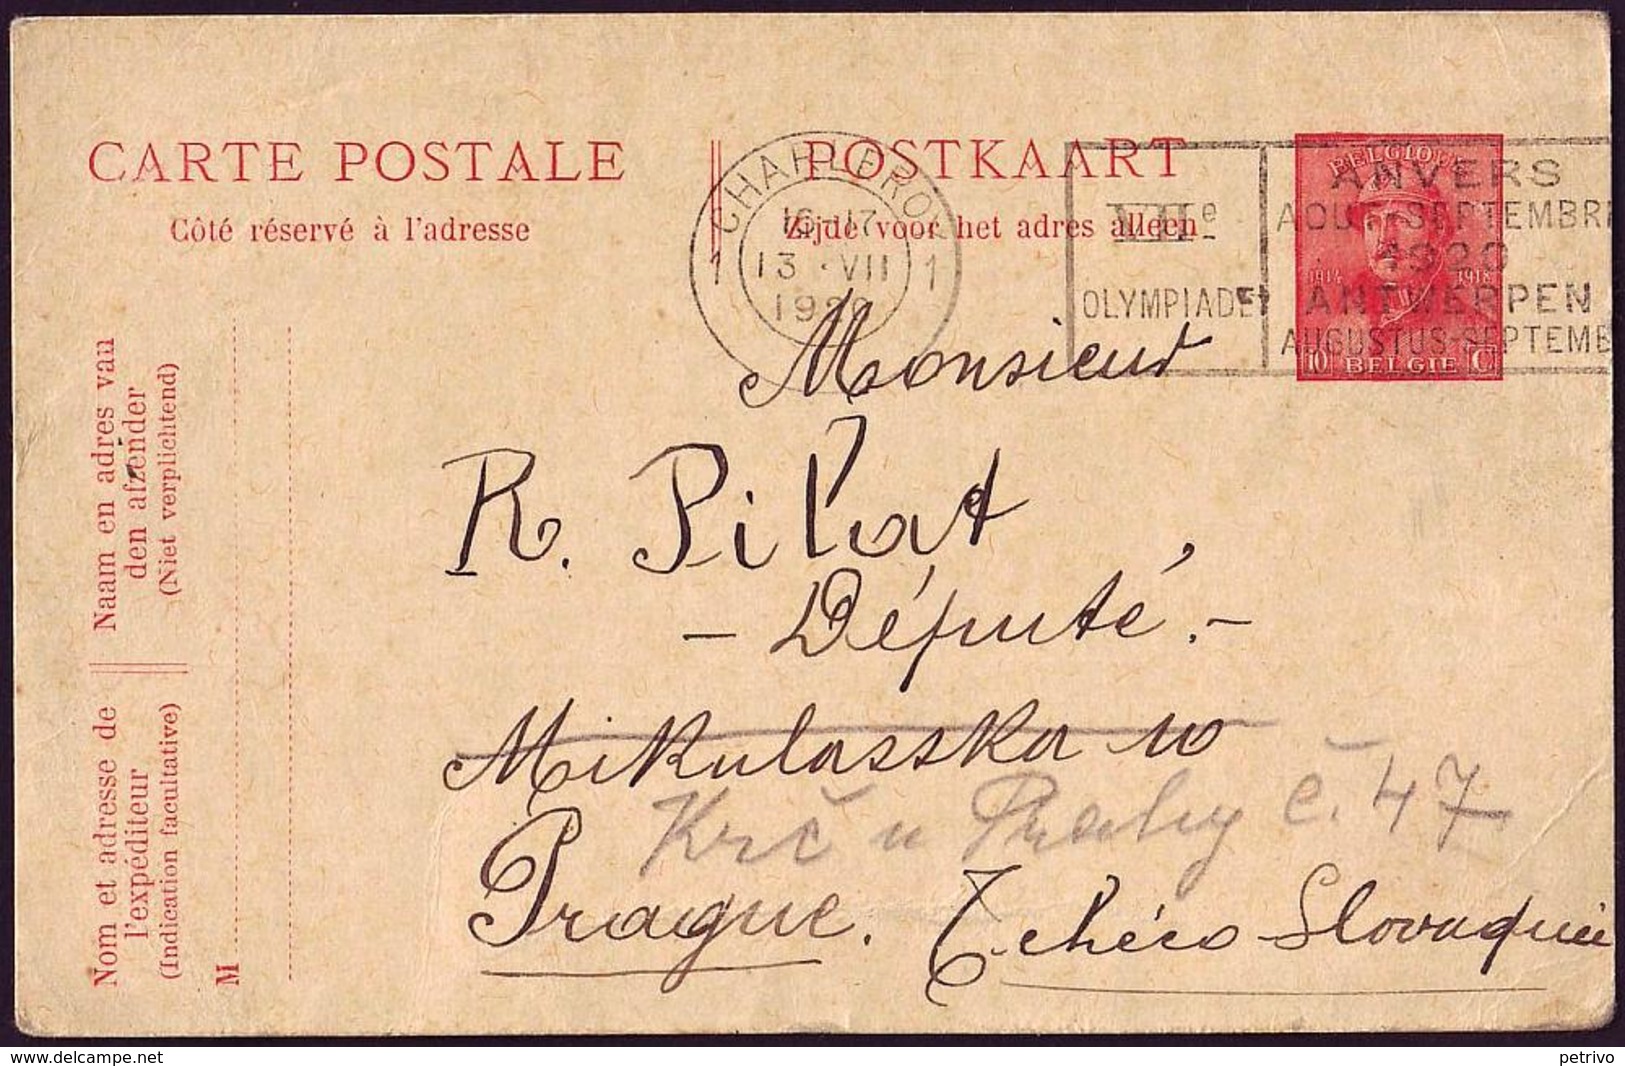 CARTE POSTALE
Côté réservé à l'adresse
POSTKAART
Zijde voor het adres alleen
CHARLEROI
1 1
16-17
13 · VII
1920
VIIe
OLYMPIADE
ANVERS
AOUT-SEPTEMBRE
1920
ANTWERPEN
AUGUSTUS-SEPTEMB
BELGIQUE
1914 1918
10 BELGIE C
Naam en adres van
den afzender
(Niet verplichtend)
Nom et adresse de
l'expéditeur
(Indication facultative)
M
Monsieur
R. Pilat
- Député.-
Mikulasska 10
Krč u Prahy č. 47
Prague. Tchéco-Slovaquie
petrivo
delcampe.net